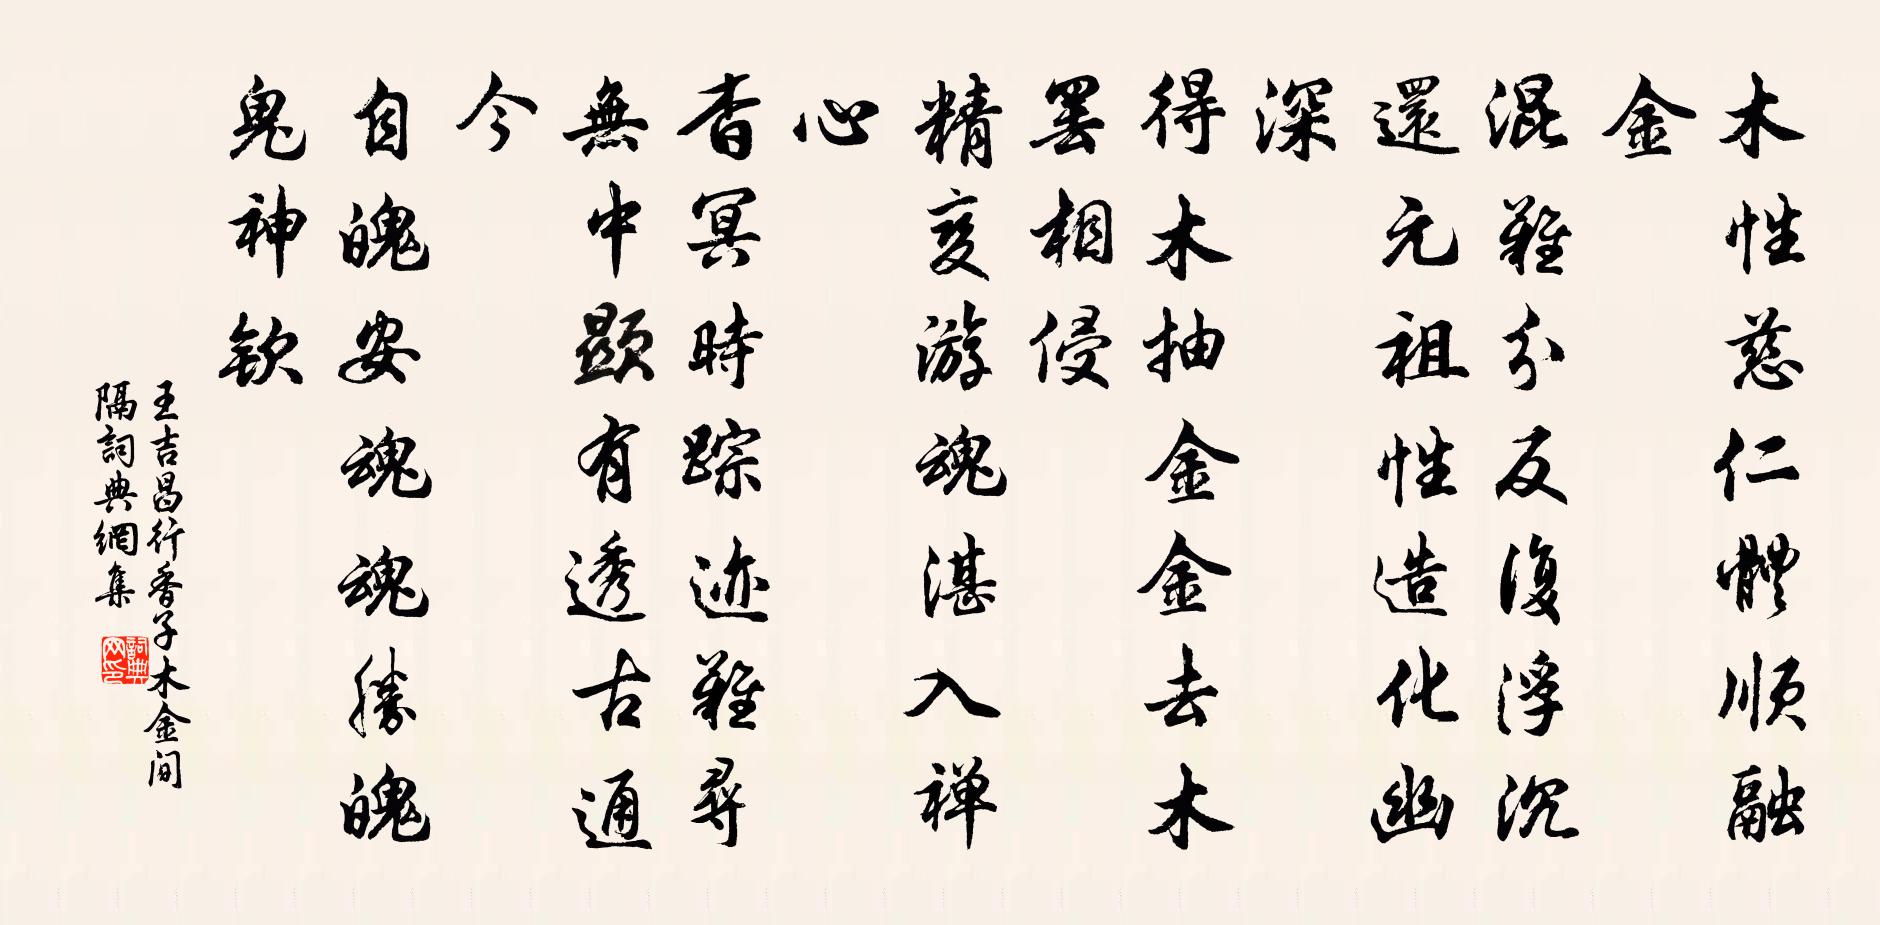 木性慈仁體順融
金
混難分反復浮沉
還元祖性造化幽
深
得木抽金金去木
罢相侵
精变游魂湛入禅
心
杳冥時踪迹難尋
無中顯有透古通
今
自魄安魂魂勝魄
鬼神欽
王吉昌行香子木金间
隔詞典網集
詞典網印